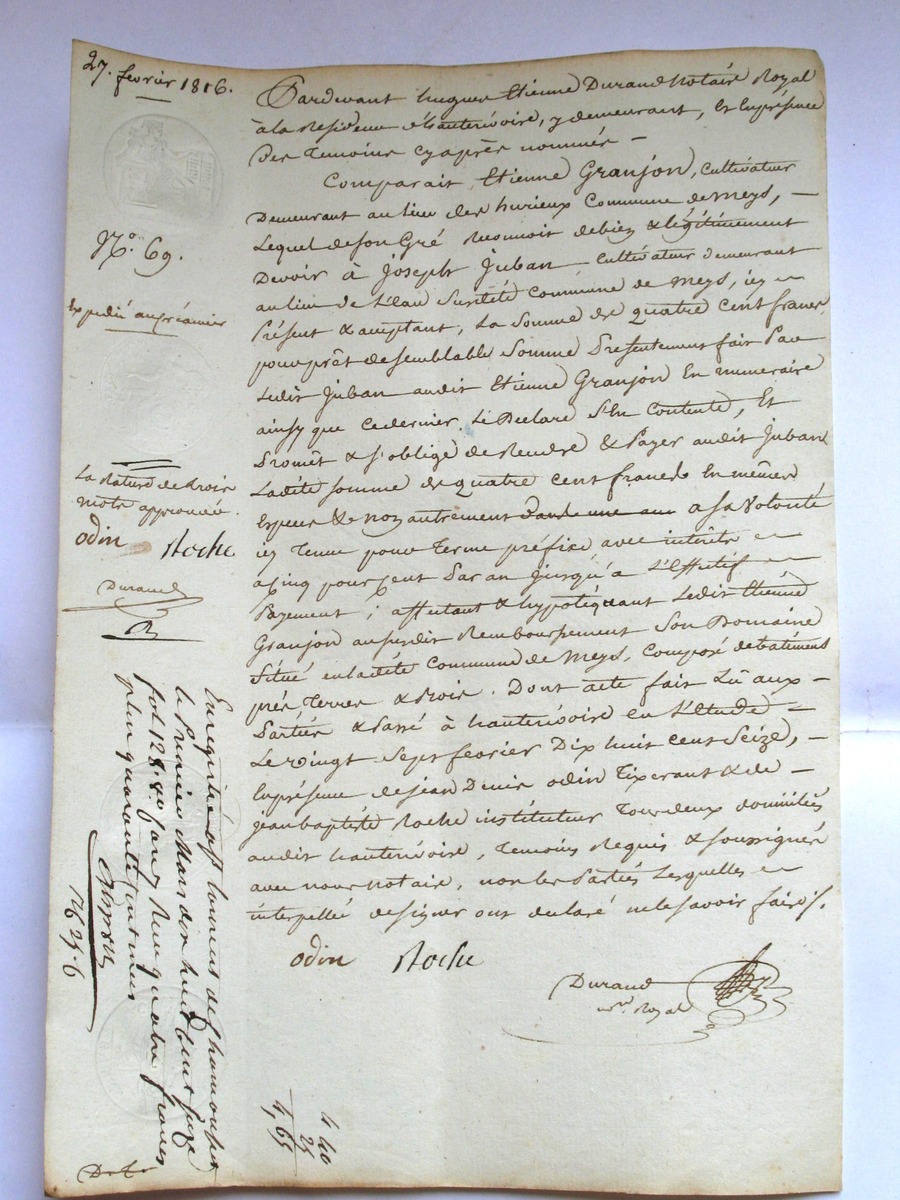 27. fevrier 1816.
Pardevant hugues Etienne Durand Notaire Royal
à la Residence d'hauterivoire, y demeurant, Et En présence
Des Temoins cyaprès nommés —
Comparait Etienne Granjon, cultivateur
Demeurant au lieu des hurieux Commune de Meys, —
Lequel de son Gré Reconnoit debien & légitimement
Devoir à Joseph Juban Cultivateur demeurant
au lieu de Susdite Commune de Meys, icy —
Présent & acceptant, La Somme de quatre cent francs
pour prêt de semblable Somme Presentement fait Par
Ledit Juban audit Etienne Granjon En numeraire
ainsy que cedernier Le Declare S'En Contente, Et
Promêt & s'oblige de Rendre & Payer audit Juban
Ladite somme de quatre cent francs En mêmes
Especes & non autrement dans une an a sa Volonté
icy Tenue pour Terme préfixe, avec intérêts —
a Cinq pour Cent Par an Jusqu'à L'Effectif —
Payement ; affectant & hypotéquant Ledit Etienne
Granjon au susdit Remboursement Son Domaine
Situé en ladite Commune de Meys, Composé de batiments
prés Terres & Bois. Dont acte fait Lû aux —
Parties & Passé à hauterivoire en L'Etude —
Le vingt Sept fevrier Dix huit cent Seize, —
En présence de jean Denis odin Tixerant & de —
jean baptiste Roche instituteur Tous deux domiciliés
audit hauterivoire, Temoins Requis & soussignés
avec nous Notaire, non les Parties Lesquelles —
interpellé designer ont declaré ne le savoir faire
odin Roche
Durand
Nre. Royal
No. 69.
Expedié au créancier
La Rature de trois
mots approuvée.
odin Roche
Durand
R
Enregistré a St Laurent de Chamousset
le Premier Mars dix huit cent seize
fol. 128 Reçu quatre francs
plus quarante centimes
16 25 6
4 40
25
4,65